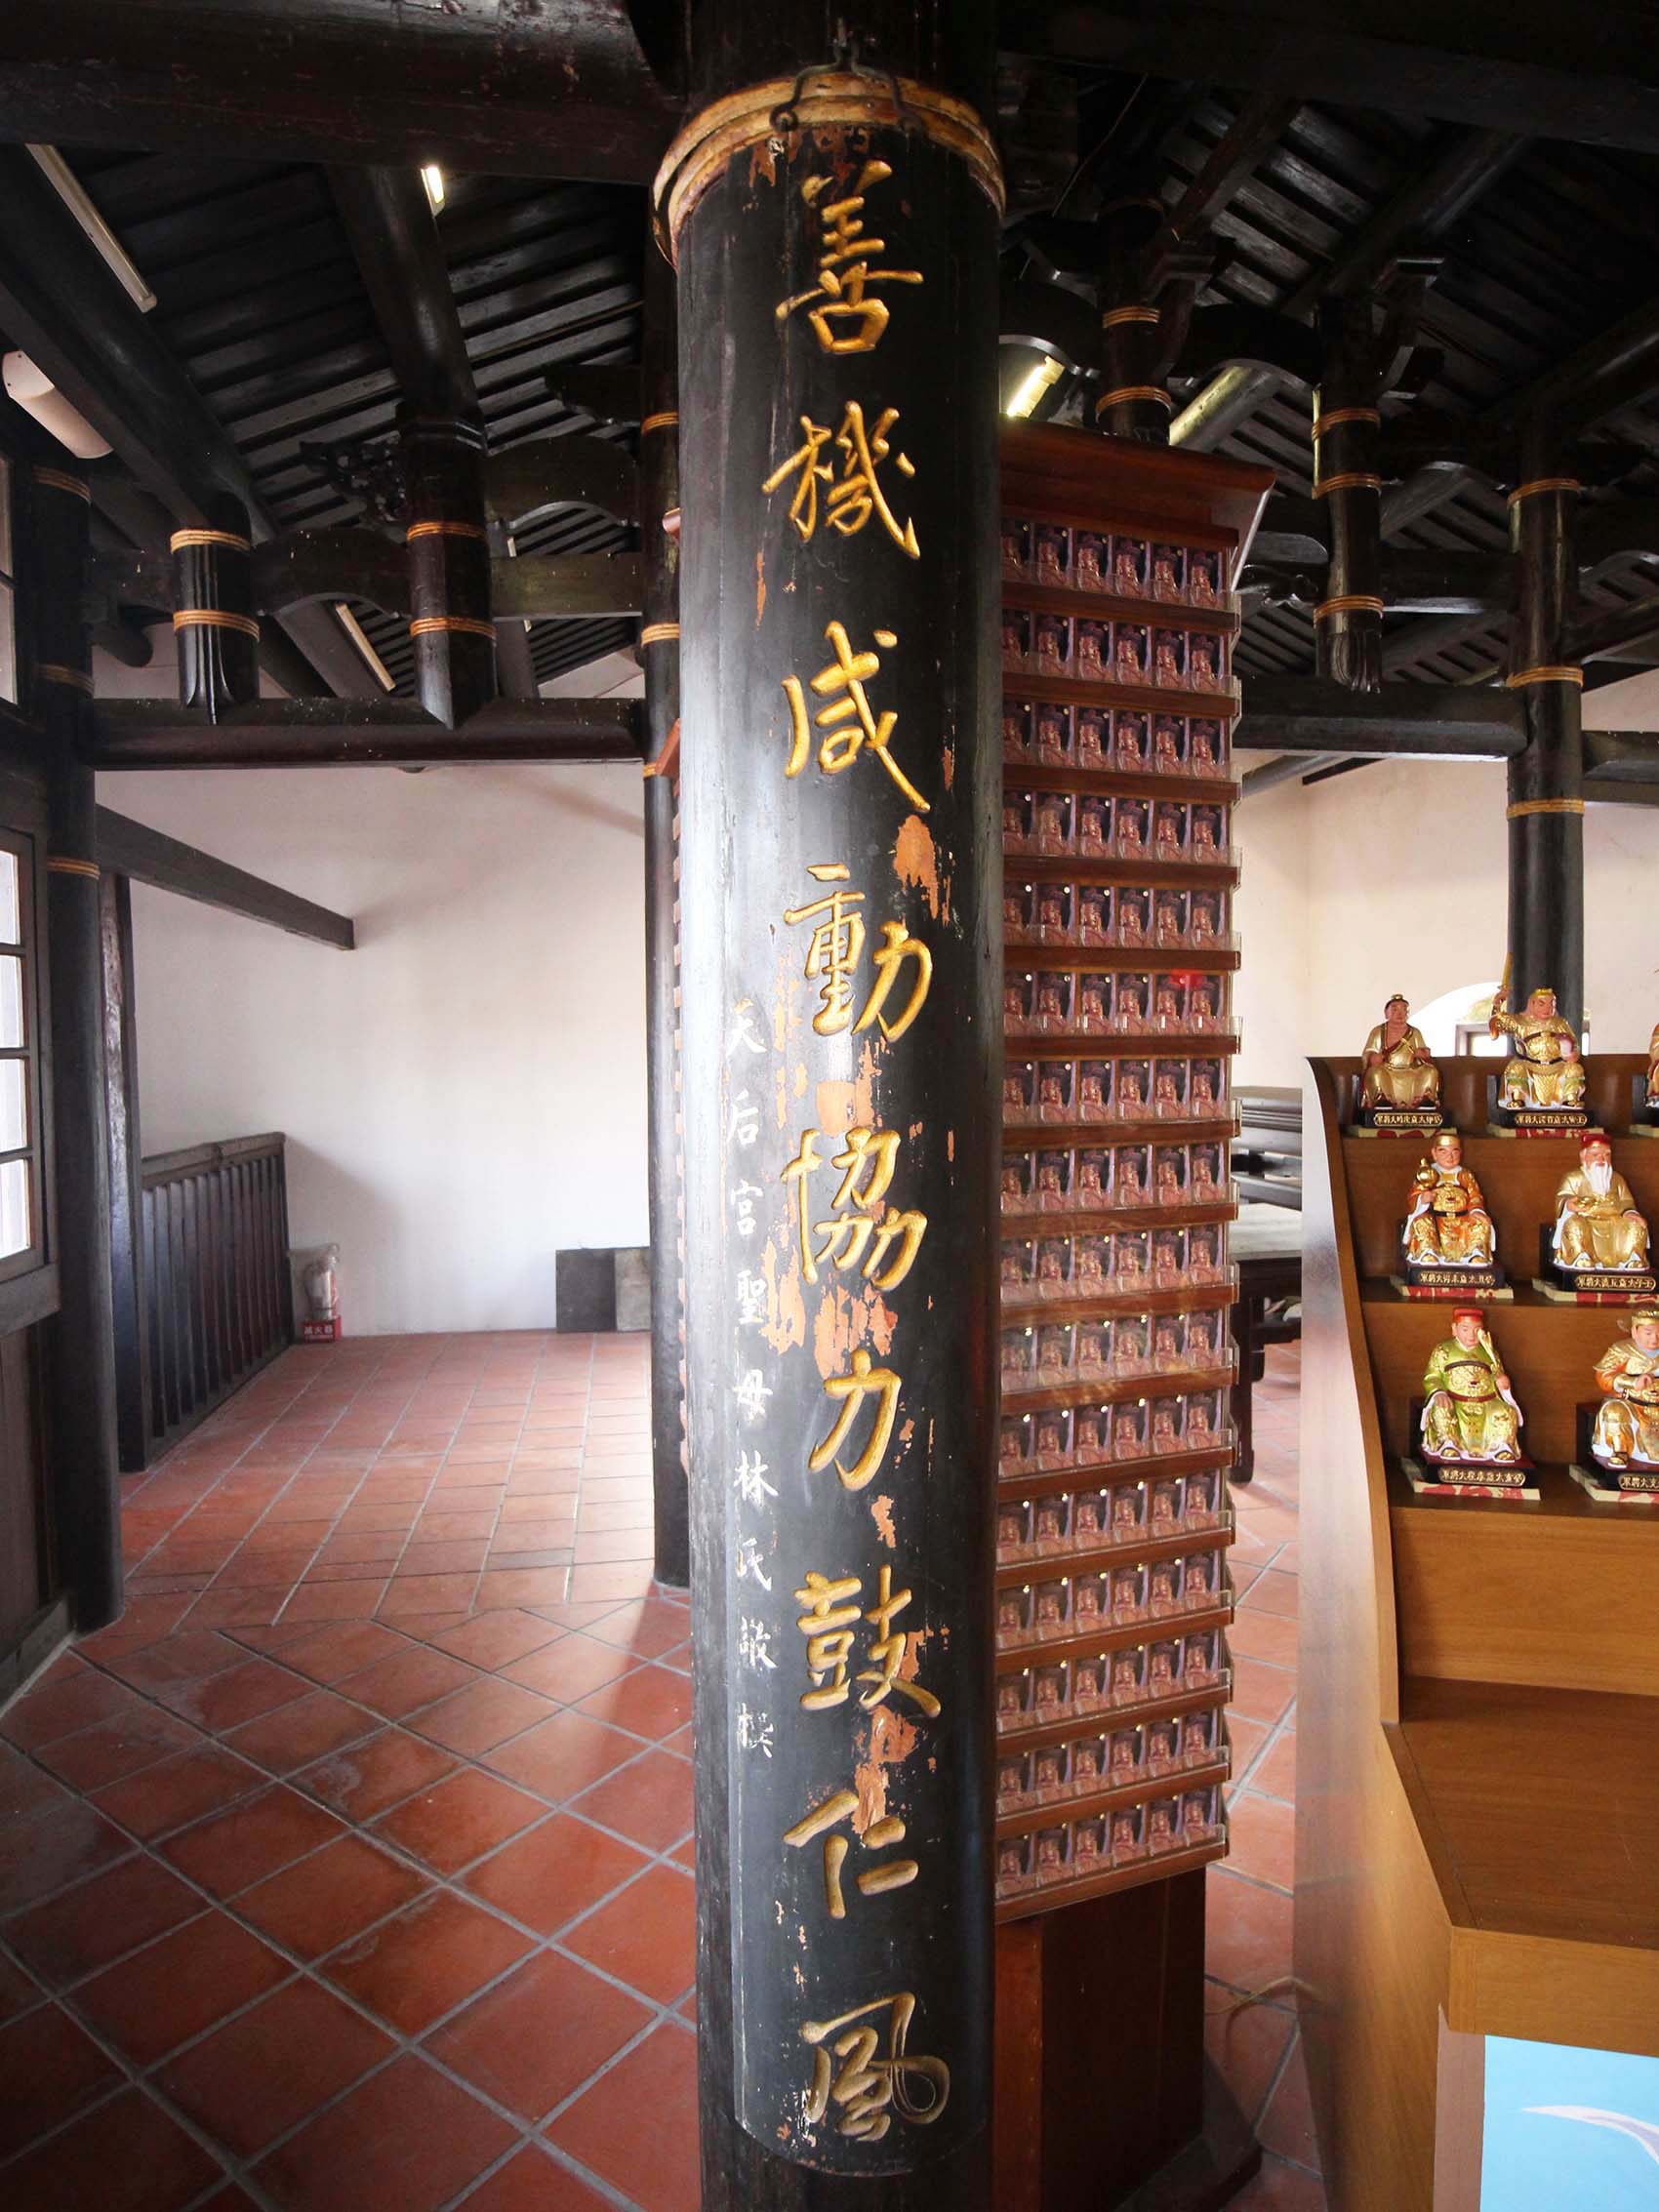 善機咸動協力鼓仁風
天后宮聖母林氏敬撰
滅火器